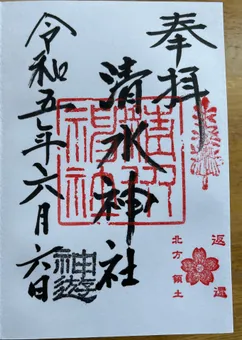 奉拝
清水神社
令和五年六月六日
神遊
返還
北方領土